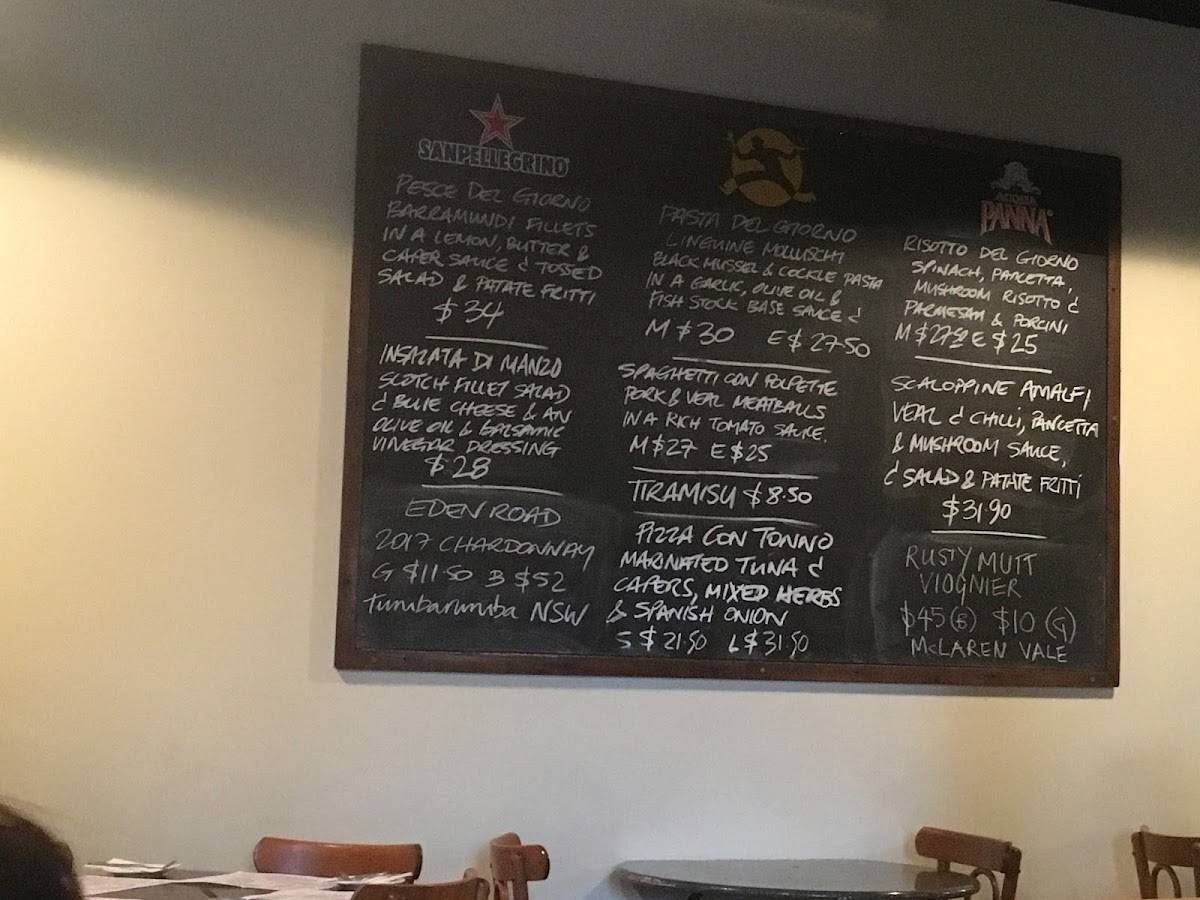 SANPELLEGRINO
PESCE DEL GIORNO
BARRAMUNDI FILLETS
IN A LEMON, BUTTER &
CAPER SAUCE C TOSSED
SALAD & PATATE FRITTI
$34
INSALATA DI MANZO
SCOTCH FILLET SALAD
C BLUE CHEESE & AN
OLIVE OIL & BALSAMIC
VINEGAR DRESSING
$28
EDEN ROAD
2017 CHARDONNAY
G $11.50 B $52
Tumbarumba NSW
PASTA DEL GIORNO
LINGUINE MOLLUSCHI
BLACK MUSSEL & COCKLE PASTA
IN A GARLIC, OLIVE OIL &
FISH STOCK BASE SAUCE C
M $30 E $27.50
SPAGHETTI CON POLPETTE
PORK & VEAL MEATBALLS
IN A RICH TOMATO SAUCE.
M $27 E $25
TIRAMISU $8.50
PIZZA CON TONNO
MARINATED TUNA C
CAPERS, MIXED HERBS
& SPANISH ONION
S $21.50 L $31.50
ACQUA
PANNA
RISOTTO DEL GIORNO
SPINACH, PANCETTA,
MUSHROOM RISOTTO C
PARMESAN & PORCINI
M $27.50 E $25
SCALOPPINE AMALFI
VEAL C CHILLI, PANCETTA
& MUSHROOM SAUCE,
C SALAD & PATATE FRITTI
$31.90
RUSTY MUTT
VIOGNIER
$45 (B) $10 (G)
McLAREN VALE